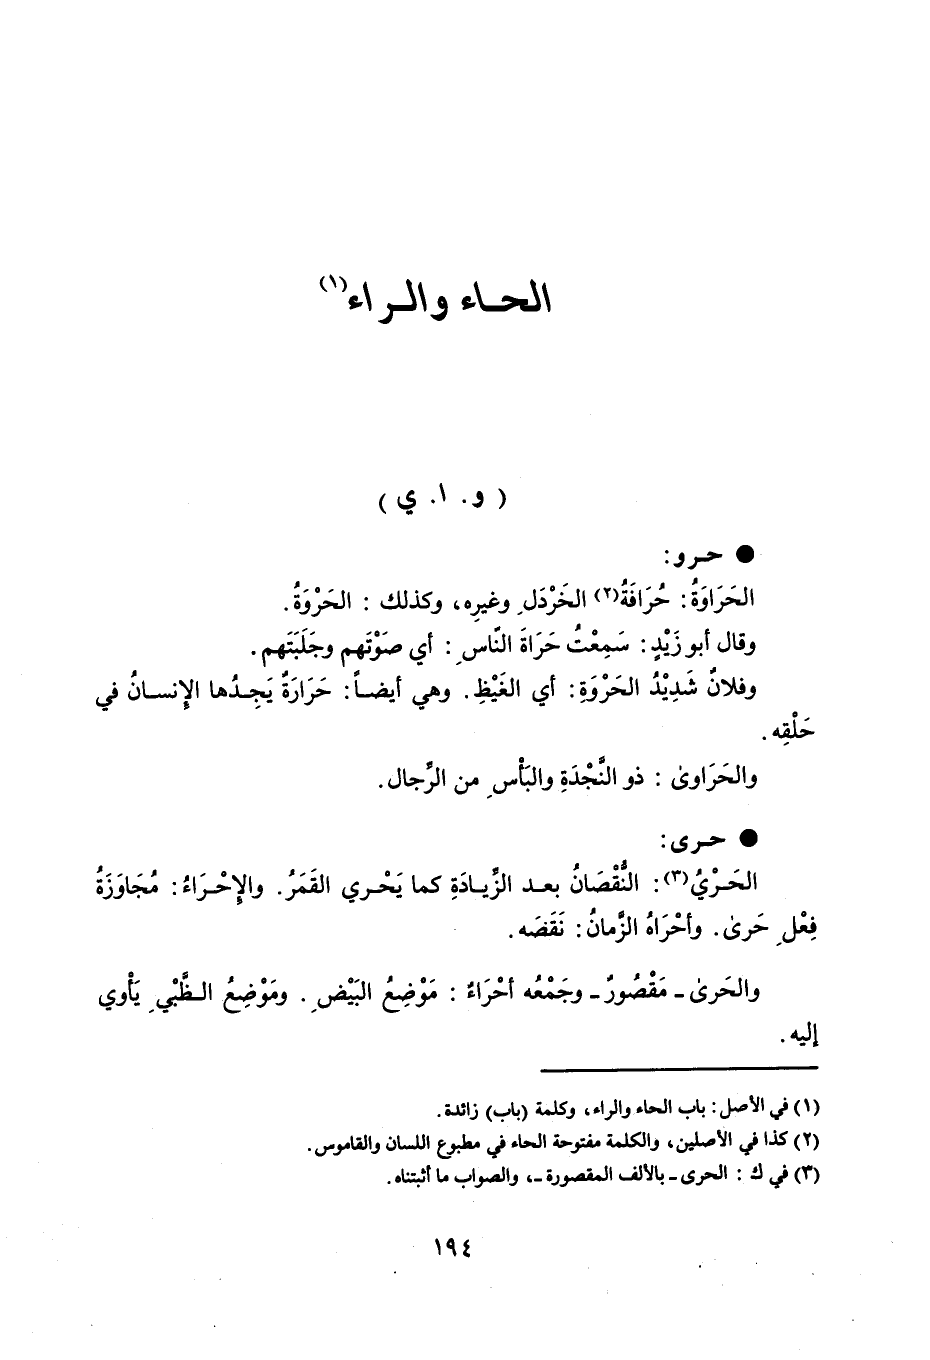 الحاء والراء(١)
( و. ا. ي )
● حرو:
الحَرَاوَةُ: حُرَافَةُ(٢) الخَرْدَلِ وغيرِه، وكذلك : الحَرْوَةُ.
وقال أبو زَيْدٍ: سَمِعْتُ حَرَاةَ النّاسِ : أي صَوْتَهم وجَلَبَتَهم.
وفلانٌ شَدِيْدُ الحَرْوَةِ: أي الغَيْظِ. وهي أيضاً: حَرَارَةٌ يَجِدُها الإِنسانُ في
حَلْقِه.
والحَرَاوىٰ : ذو النَّجْدَةِ والبَأْسِ من الرِّجال.
● حرى:
الحَرْيُ(٣): النُّقْصَانُ بعد الزِّيادَةِ كما يَحْري القَمَرُ. والإِحْرَاءُ: مُجَاوَزَةُ
فِعْلِ حَرىٰ. وأحْرَاهُ الزَّمانُ: نَقَصَه.
والحَرىٰ ـ مَقْصُورٌ ـ وجَمْعُه أحْرَاءٌ : مَوْضِعُ البَيْضِ . ومَوْضِعُ الظَّبْيِ يَأْوي
إليه.
(١) في الأصل: باب الحاء والراء، وكلمة (باب) زائدة.
(٢) كذا في الأصلين، والكلمة مفتوحة الحاء في مطبوع اللسان والقاموس.
(٣) في ك : الحرى ـ بالألف المقصورة ـ، والصواب ما أثبتناه.
١٩٤